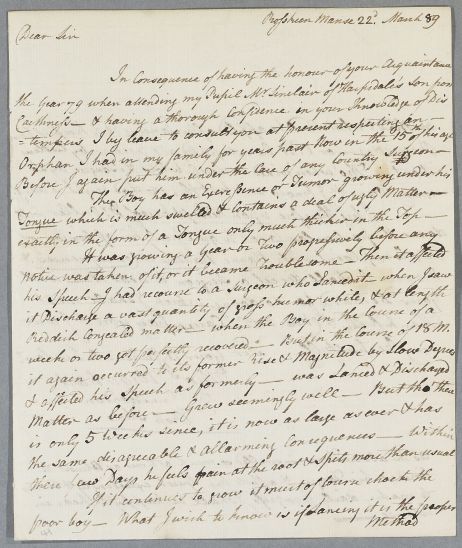 Rosskeen Manse 22d. March 89
Dear Sir
In Consequence of having the honour of your Acquaintance
the year 79 when attending my Pupil Mr Sinclair of Harpsdale's son from
Caithness — & having a thorough Confidence in your Knowledge of Dis
=tempers, I by leave to consult you at present respecting an —
Orphan I had in my family for years past now in the 15th of his age
Before I again put him under the Care of any Country Surgeon —
The Boy has an Excressence or Tumor growing under his
Tongue which is much swelled & contains a deal of ugly Matter —
exactly in the form of a Tongue only much thicker in the Top —
It was growing a Year or Two progressively before any
Notice was taken of it, or it became troublesome — Then it affected
his Speech — I had recourse to a Surgeon who Lanced it when I saw
it Discharge a vast quantity of gross humor white, & at length
a reddish Congealed matter — when the Boy in the Course of a
week or two got perfectly recovered — But in the Course of 18 M.
it again occurred to its former Rise & Magnitude by Slow Degrees
& affected his Speech as formerly — was Lanced & Discharged
Matter as before — Grew seemingly well — But tho' there
is only 5 Weeks since, it is now as large as ever & has
the same disagreeable & allarming Consequences — Within
these few Days he feels pain at the root & Spits more than usual
If it continues to grow it must of course choak the
poor boy — What I wish to know is if Lancing it is the proper
Method